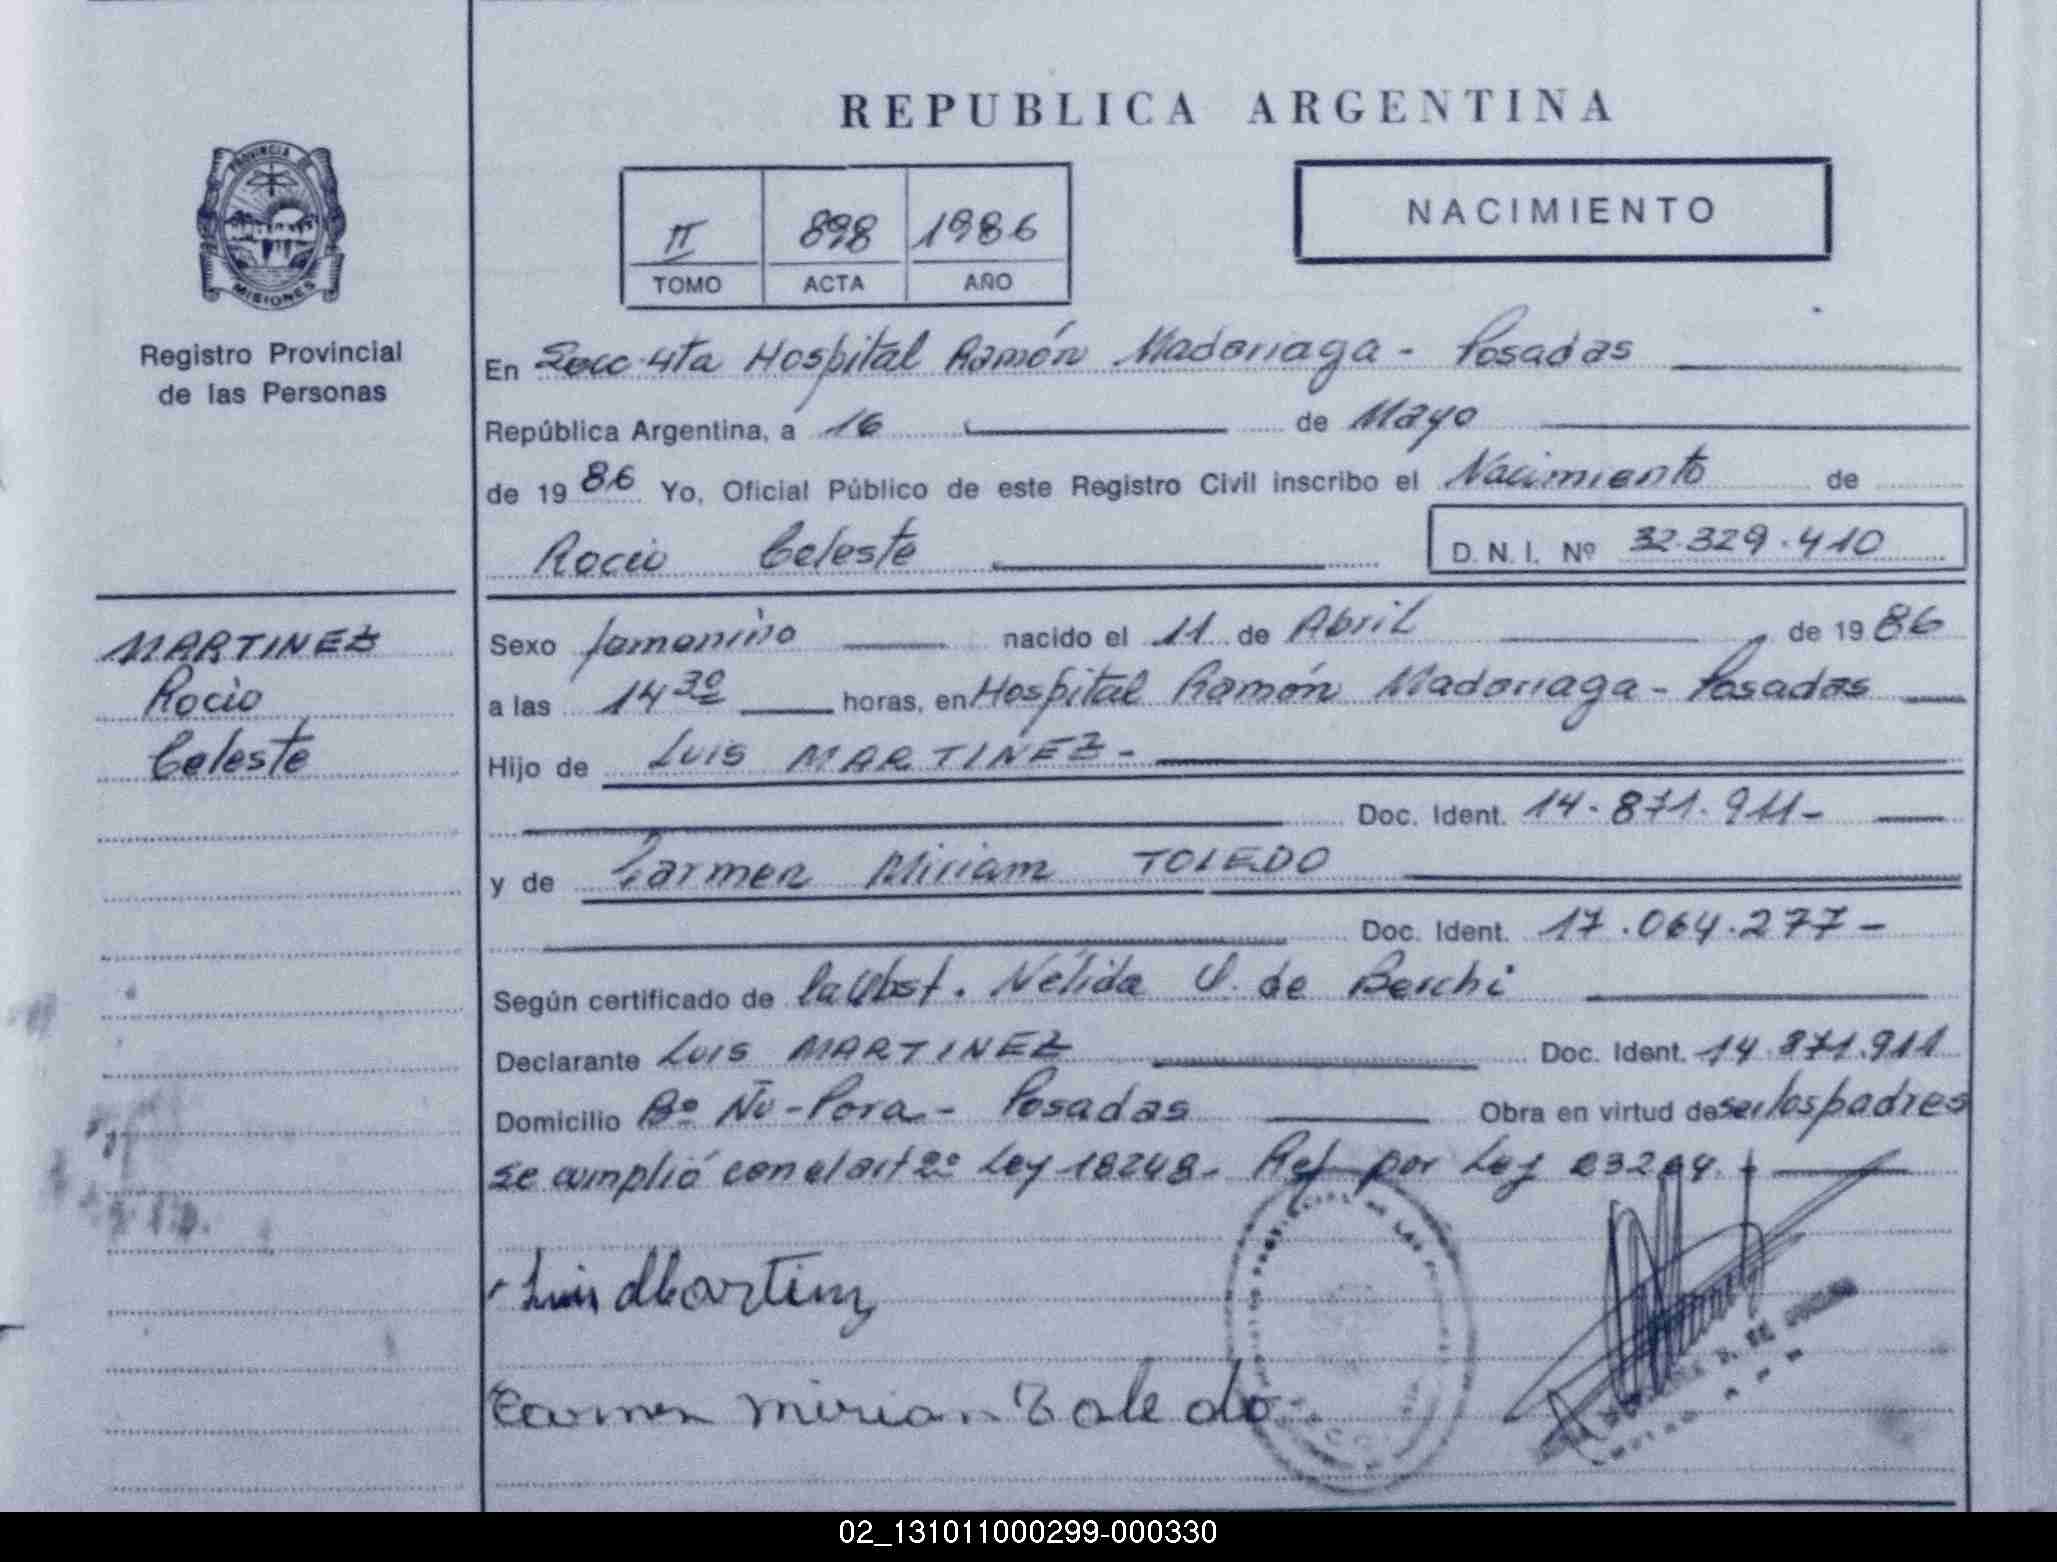 REPUBLICA ARGENTINA
PROVINCIA DE
MISIONES
Registro Provincial
de las Personas
II 898 1986
TOMO ACTA AÑO
NACIMIENTO
En Secc. 4ta Hospital Ramón Madariaga - Posadas
República Argentina, a 16 de Mayo
de 1986 Yo, Oficial Público de este Registro Civil inscribo el Nacimiento de
Rocio Celeste D. N. I. Nº 32.329.410
MARTINEZ
Rocio
Celeste
Sexo femenino nacido el 11 de Abril de 1986
a las 14 30 horas, en Hospital Ramón Madariaga - Posadas
Hijo de Luis MARTINEZ -
Doc. Ident. 14.871.911-
y de Carmen Miriam TOLEDO
Doc. Ident. 17.064.277-
Según certificado de la Obst. Nélida de
Declarante Luis MARTINEZ Doc. Ident. 14.871.911
Domicilio Bº Ñu-Pora - Posadas Obra en virtud de ser los padres
se cumplió con el art 2º Ley 18248 - Ref por Ley 23264.
Luis Martinez
Carmen Mirian Toledo
02_131011000299-000330